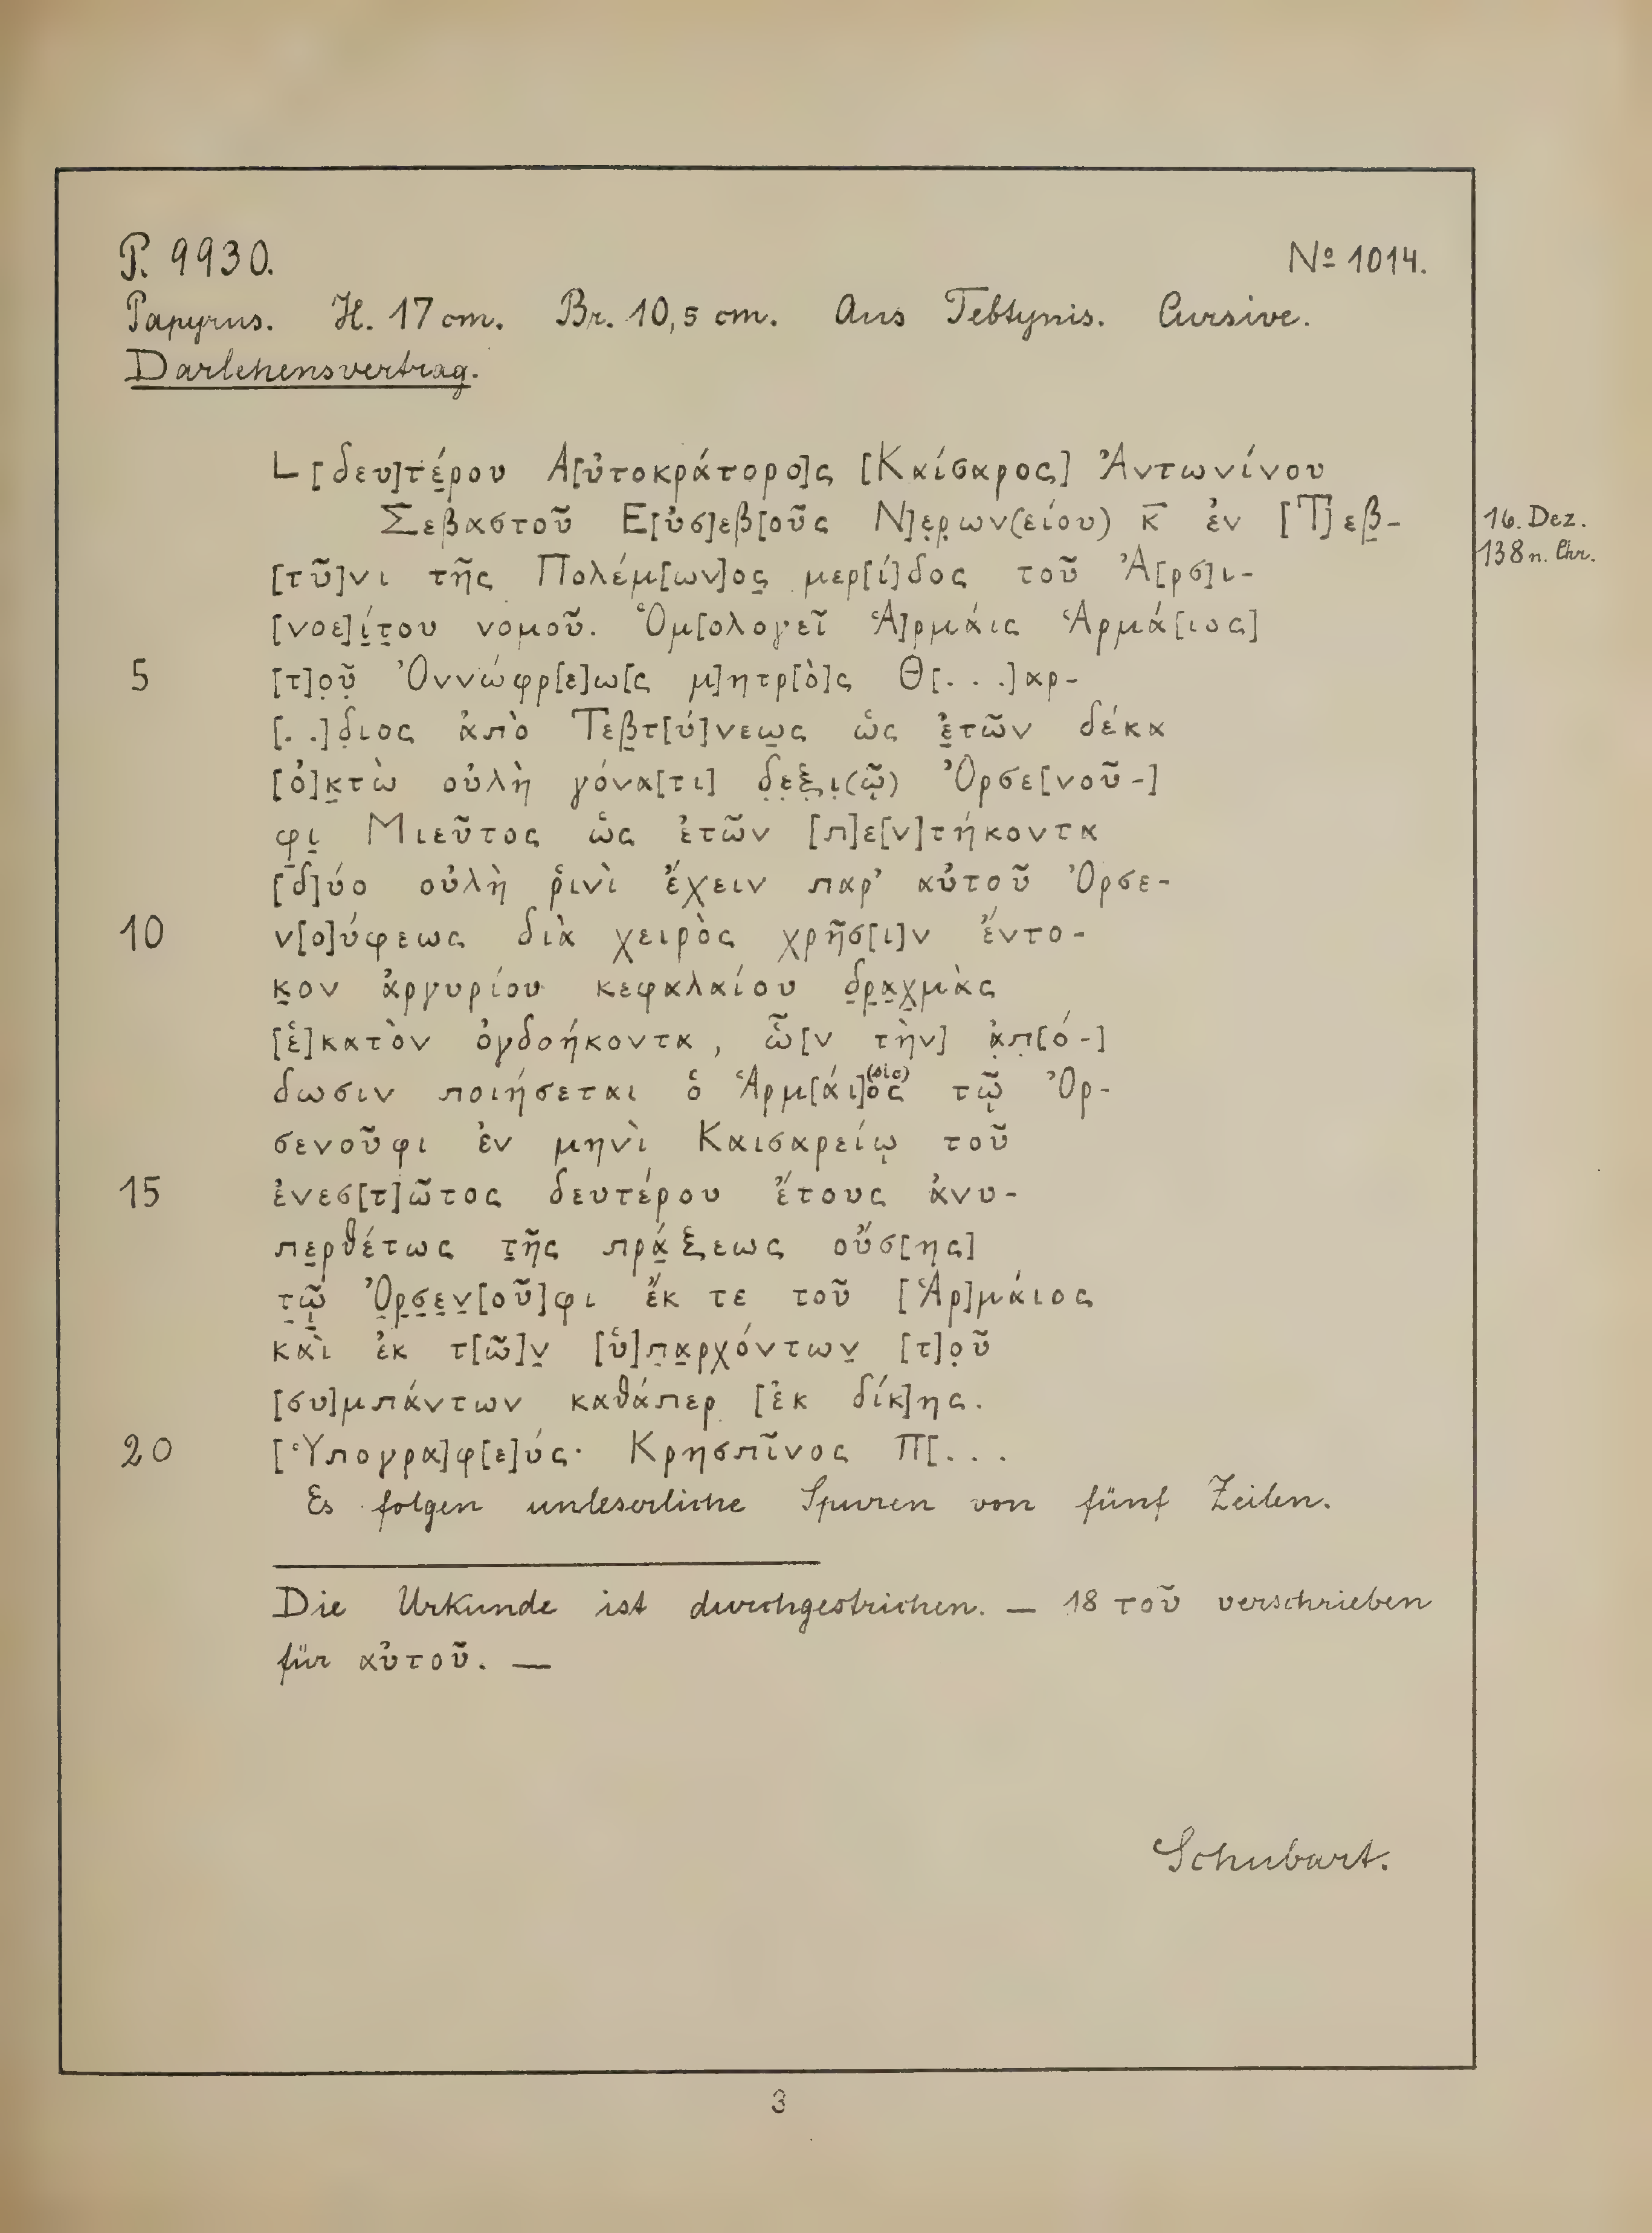 P. 9930.
Nº 1014.
Papyrus. H. 17 cm. Br. 10,5 cm. Aus Tebtynis. Cursive.
Darlehensvertrag.
L [δευ]τέ̣ρου Α[ὐτοκράτορο]ς [Καίσαρος] Ἀντωνίνου
Σεβαστοῦ Ε[ὐσ]εβ[οῦς Ν]ε̣ρ̣ων(είου) κ̅ ἐν [Τ]εβ̣-
16. Dez.
138 n. Chr.
[τῦ]νι τῆς Πολέμ[ων]ο̣ς μερ[ί]δος τοῦ Ἀ[ρσ]ι-
[νοε]ί̣τ̣ου νομοῦ. Ὁμ[ολογεῖ Ἁ]ρμάις Ἁρμά[ιος]
5 [τ]ο̣ῦ̣ Ὀννώφρ[ε]ω[ς μ]ητρ[ὸ]ς Θ[. . .]αρ-
[. .]δ̣ιος ἀπὸ Τεβ̣τ[ύ]νεω̣ς ὡς ἐ̣τῶν δέκα
[ὀ]κ̣τὼ οὐλὴ γόνα[τι] δ̣ε̣ξ̣ι̣(ῷ) Ὀρσε[νοῦ-]
φ̣ι̣ Μιεῦτος ὡς ἐτῶν [π]ε[ν]τήκοντα
[δ]ύο οὐλὴ ῥινὶ ἔχειν παρ’ αὐτοῦ Ὀρσε-
10 ν[ο]ύφεως διὰ χειρὸς χρῆσ[ι]ν ἔντο-
κ̣ον ἀργυρίου κεφαλαίου δ̣ρ̣α̣χ̣μὰς
[ἑ]κατὸν ὀγδοήκοντα, ὧ[ν τὴν] ἀ̣π̣[ό-]
δωσιν ποιήσεται ὁ Ἁρμ[άι]ος (sic) τῷ Ὀρ-
σενοῦφι ἐν μηνὶ Καισαρείῳ τοῦ
15 ἐνεσ[τ]ῶτος δευτέρου ἔτους ἀνυ-
πε̣ρθέτως τ̣ῆς πρά̣ξεως οὔσ[ης]
τ̣ῷ̣ Ὀ̣ρ̣σ̣ε̣ν̣[οῦ]φι ἔκ τε τοῦ [Ἁρ]μάιος
καὶ ἐκ τ[ῶ]ν̣ [ὑ]π̣α̣ρχόντων̣ [τ]ο̣ῦ
[συ]μπάντων καθάπερ [ἐκ δίκ]ης.
20 [Ὑπογρα]φ[ε]ύς· Κρησπῖνος Π[. . .
Es folgen unleserliche Spuren von fünf Zeilen.
Die Urkunde ist durchgestrichen. — 18 τοῦ verschrieben
für αὐτοῦ. —
Schubart.
3